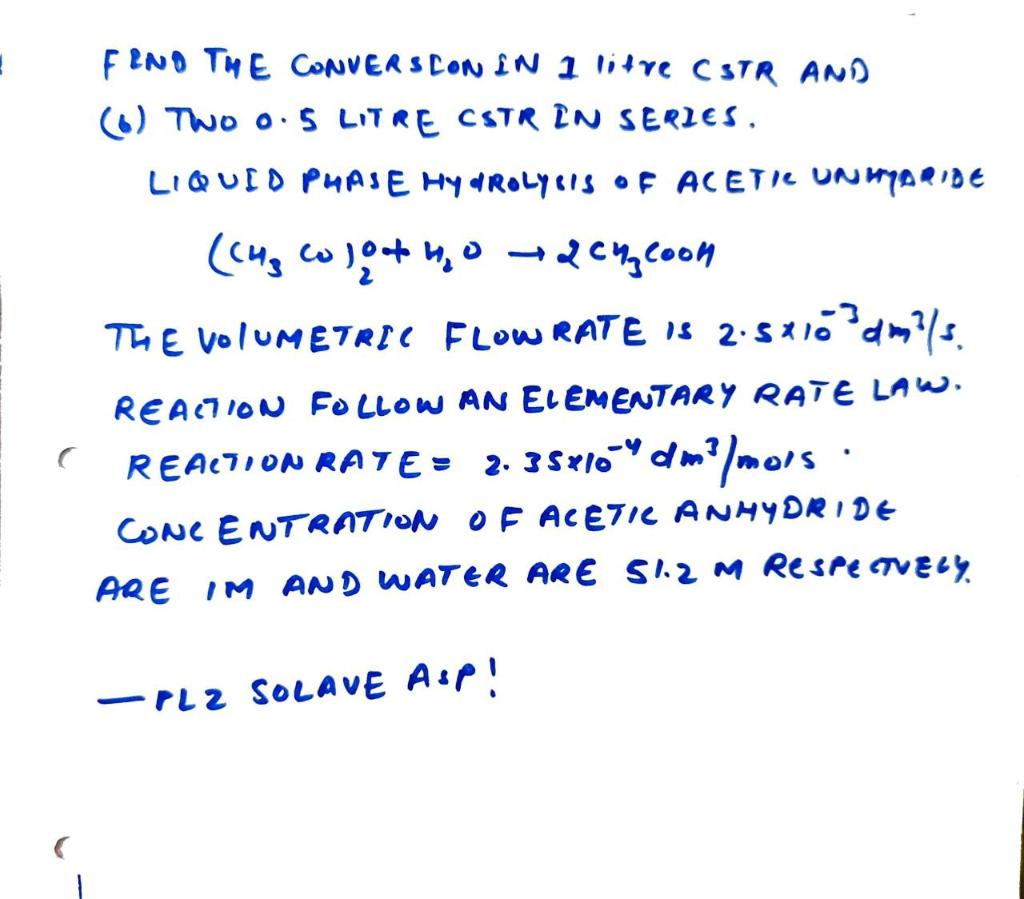 FIND THE CONVERSION IN 1 litre CSTR AND
(b) TWO 0.5 LITRE CSTR IN SERIES.
LIQUID PHASE HYdROLYSIS OF ACETIC UNHYDRIDE
(CH₃ CO)₂O + H₂O → 2CH₃COOH
THE VOlUMETRIC FLOWRATE IS 2.5x10⁻³dm³/s.
REACTION FOLLOW AN ELEMENTARY RATE LAW.
REACTION RATE = 2.35x10⁻⁴ dm³/mols .
CONCENTRATION OF ACETIC ANHYDRIDE
ARE 1M AND WATER ARE 51.2 M RESPECTVELY.
— PLZ SOLAVE ASP!